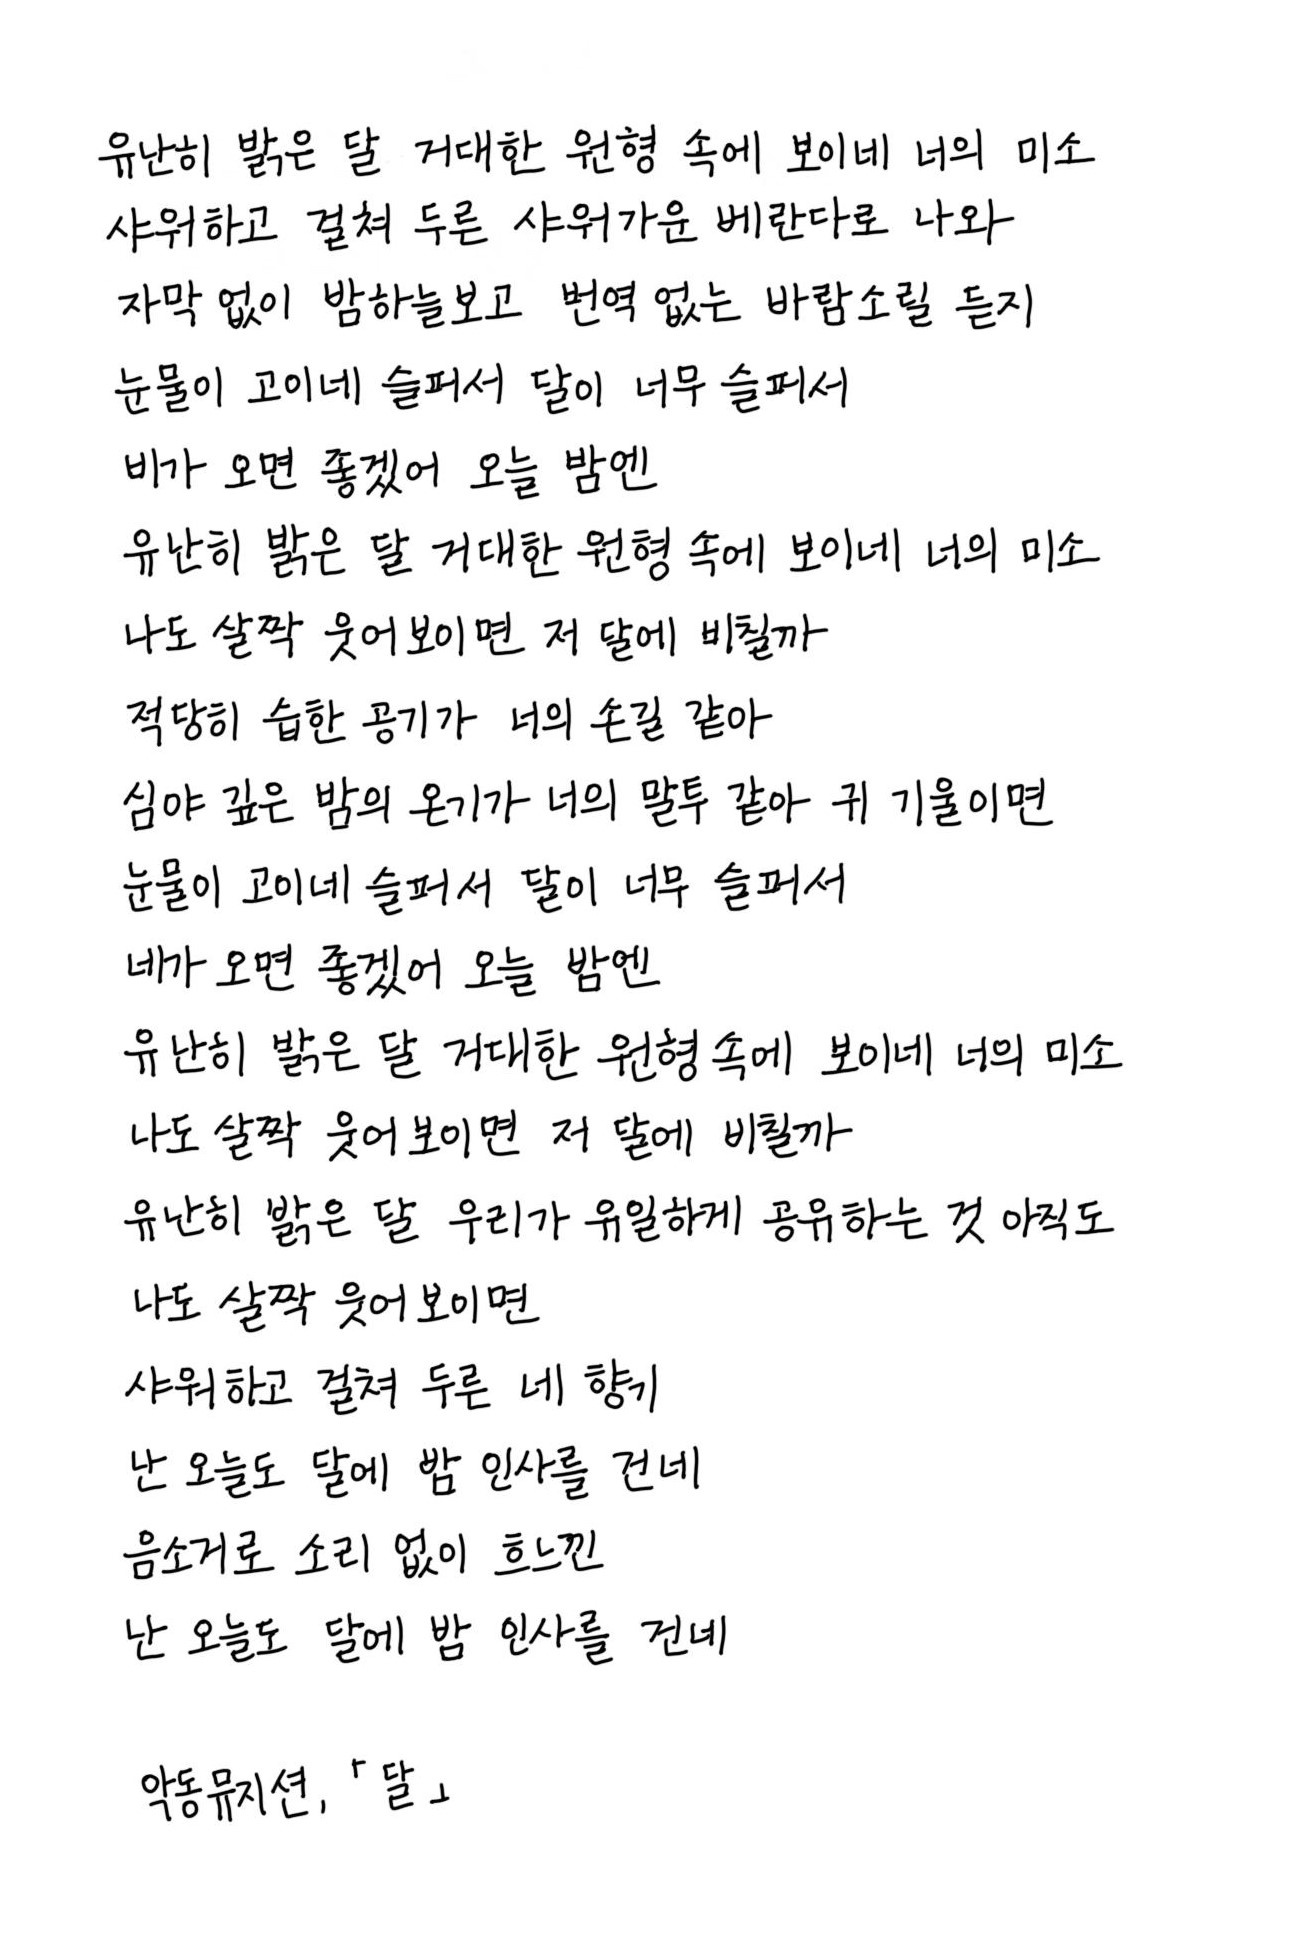 유난히 밝은 달 거대한 원형 속에 보이네 너의 미소
샤워하고 걸쳐 두른 샤워가운 베란다로 나와
자막 없이 밤하늘보고 번역 없는 바람소릴 듣지
눈물이 고이네 슬퍼서 달이 너무 슬퍼서
비가 오면 좋겠어 오늘 밤엔
유난히 밝은 달 거대한 원형 속에 보이네 너의 미소
나도 살짝 웃어보이면 저 달에 비칠까
적당히 습한 공기가 너의 손길 같아
심야 깊은 밤의 온기가 너의 말투 같아 귀 기울이면
눈물이 고이네 슬퍼서 달이 너무 슬퍼서
네가 오면 좋겠어 오늘 밤엔
유난히 밝은 달 거대한 원형 속에 보이네 너의 미소
나도 살짝 웃어보이면 저 달에 비칠까
유난히 밝은 달 우리가 유일하게 공유하는 것 아직도
나도 살짝 웃어보이면
샤워하고 걸쳐 두른 네 향기
난 오늘도 달에 밤 인사를 건네
음소거로 소리 없이 흐느낀
난 오늘도 달에 밤 인사를 건네
악동뮤지션, 「달」